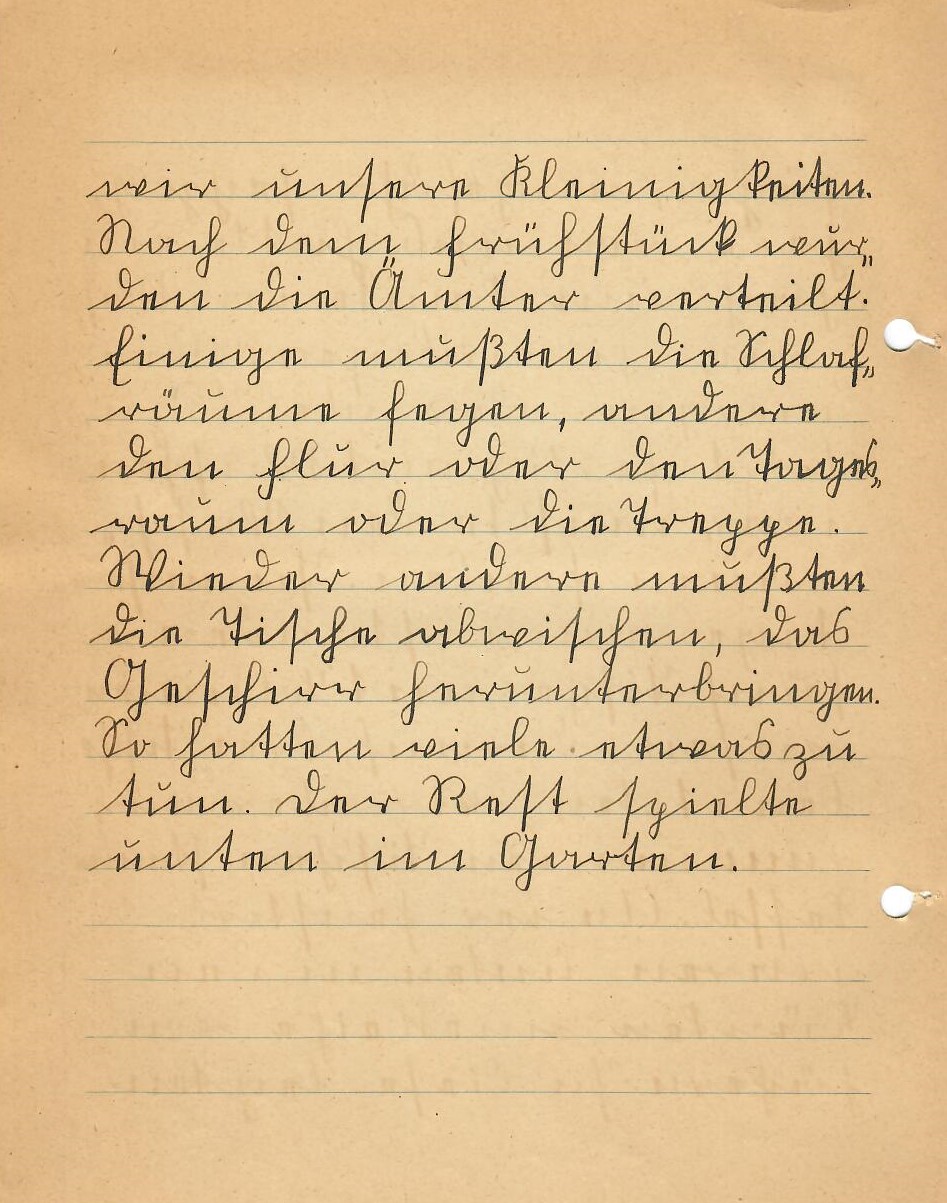 wir unsere Kleinigkeiten.
Nach dem Frühstück wur„
den die Ämter verteilt.
Einige mußten die Schlaf„
räume fegen, andere
den Flur oder den Tages„
raum oder die Treppe.
Wieder andere mußten
die Tische abwischen, das
Geschirr herunterbringen.
So hatten viele etwas zu
tun. Der Rest spielte
unten im Garten.